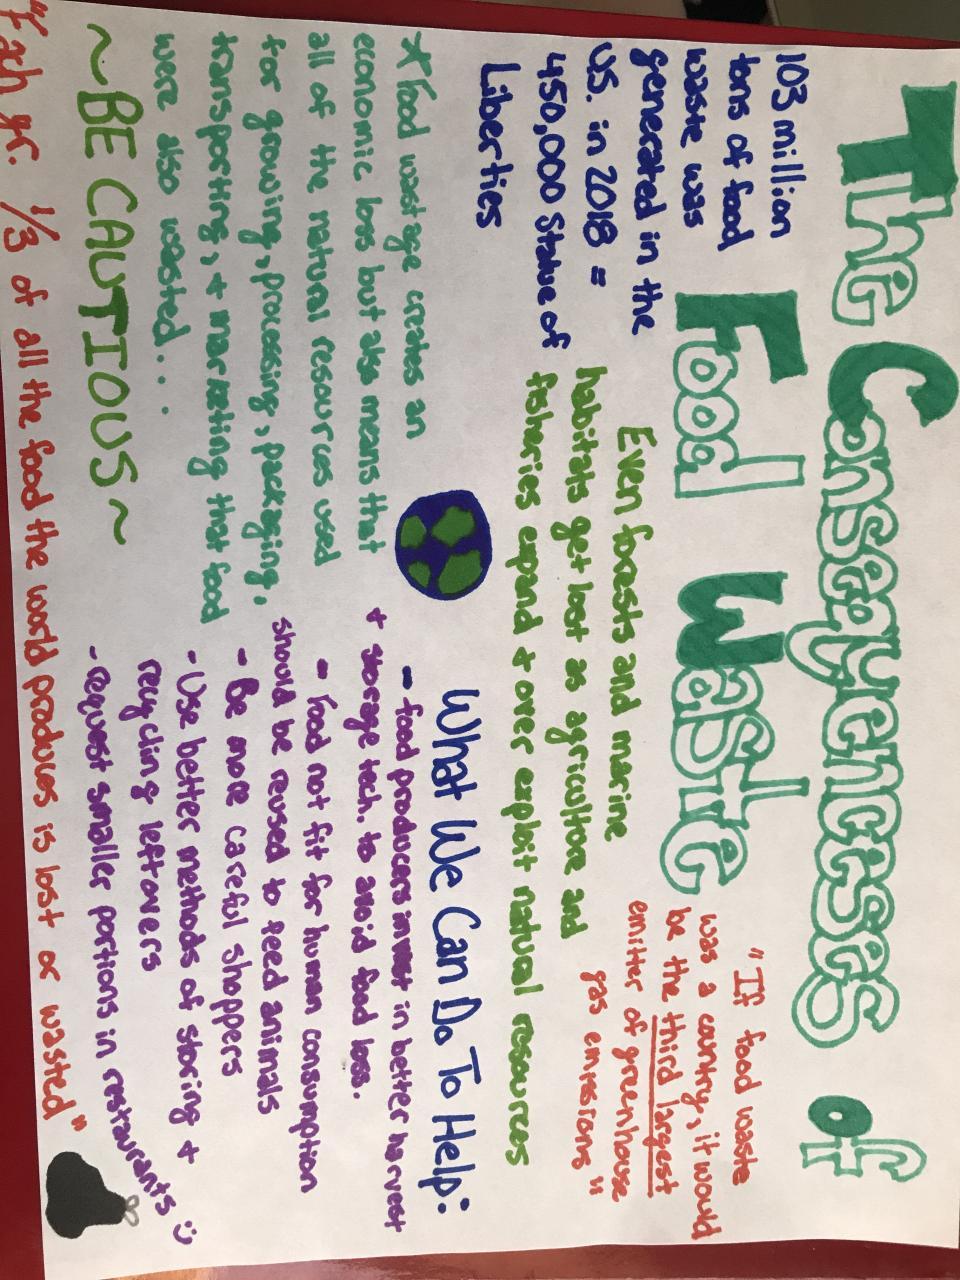 The Consequences of
Food Waste
103 million
tons of food
waste was
generated in the
US. in 2018 =
450,000 Statue of
Liberties
"If food waste
was a country, it would
be the third largest
emitter of greenhouse
gas emissions"
Even forests and marine
habitats get lost as agriculture and
fisheries expand + over exploit natural resources
* Food wastage creates an
economic loss but also means that
all of the natural resources used
for growing, processing, packaging,
transporting, + marketing that food
were also wasted...
~BE CAUTIOUS~
What We Can Do To Help:
- food producers invest in better harvest
+ storage tech. to avoid food loss.
- Food not fit for human consumption
should be reused to feed animals
- Be more careful shoppers
- Use better methods of storing +
recycling leftovers
- request smaller portions in restaurants :)
"Each yr. 1/3 of all the food the world produces is lost or wasted"